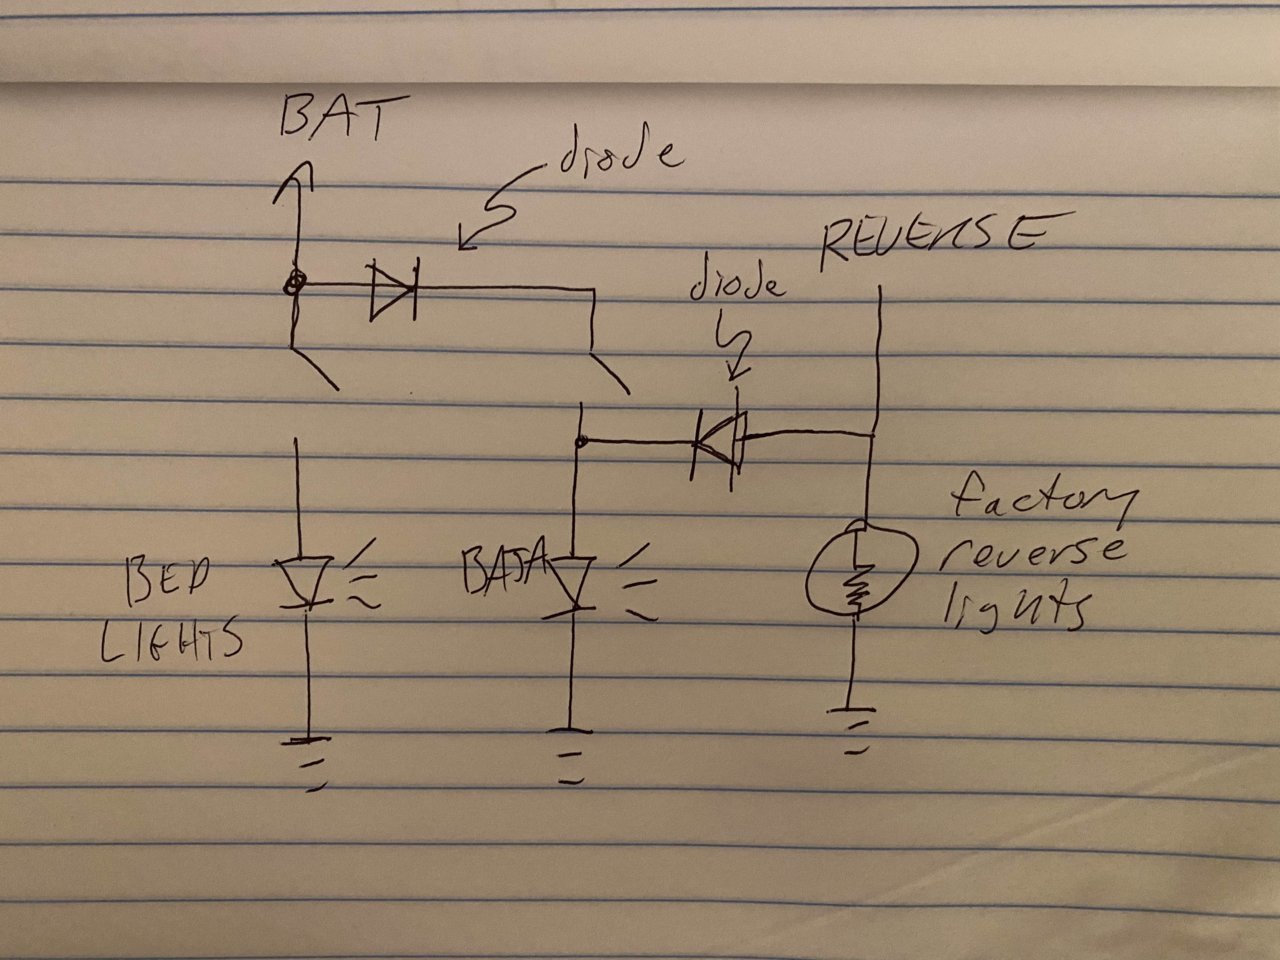 BAT
diode
REVERSE
diode
factory
reverse
lights
BED
LIGHTS
BAJA